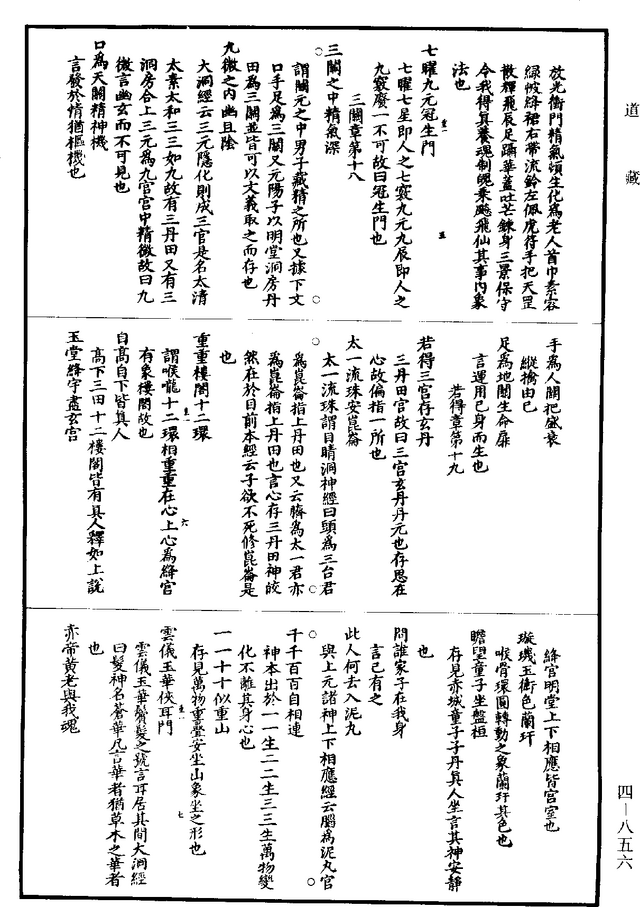 道藏
放光衝門精氣煩生化為老人首巾素容
綠帔絳裙右帶流鈴左佩虎符手把天罡
散輝飛辰足躡華蓋吐芒鍊身三景保守
令我得真養魂制魄乘飈飛仙其事內象
法也
七曜九元冠生門
七曜七星即人之七竅九元九辰即人之
九竅廢一不可故曰冠生門也
三關章第十八
三關之中精氣深
謂關元之中男子藏精之所也又據下文
口手足為三關又元陽子以明堂洞房丹
田為三關並皆可以文義取之而存也
九微之內幽且陰
大洞經云三元隱化則成三宮是名太清
太素太和三三如九故有三丹田又有三
洞房合上三元為九宮宮中精微故曰九
微言幽玄而不可見也
口為天關精神機
言發於情猶樞機也
手為人關把盛衰
縱擒由己
足為地關生命扉
言運用己身而生也
若得章第十九
若得三宮存玄丹
三丹田宮故曰三宮玄丹丹元也存思在
心故偏指一所也
太一流珠安崑崙
太一流珠謂目睛洞神經曰頭為三台君
為崑崙指上丹田也又云臍為太一君亦
為崑崙指上丹田也言心存三丹田神皎
然在於目前本經云子欲不死修崑崙是
也
重重樓閣十二環
謂喉嚨十二環相重重在心上心為絳宮
有象樓閣故也
自高自下皆真人
高下三田十二樓閣皆有真人釋如上說
玉堂絳宇盡玄宮
絳宮明堂上下相應皆宮室也
璇璣玉衡色蘭玕
喉骨環圓轉動之象蘭玕其色也
瞻望童子坐盤桓
存見赤城童子子丹真人坐言其神安靜
也
問誰家子在我身
言己有之
此人何去入泥丸
與上元諸神上下相應經云腦為泥丸宮
千千百百自相連
神本出於一一生二二生三三生萬物變
化不離其身心也
一一十十似重山
存見萬物重疊安坐山象坐之形也
雲儀玉華俠耳門
雲儀玉華鬢髮之號言耳居其間大洞經
曰髮神名蒼華凡言華者猶草木之華者
也
赤帝黃老與我魂
四—八五六